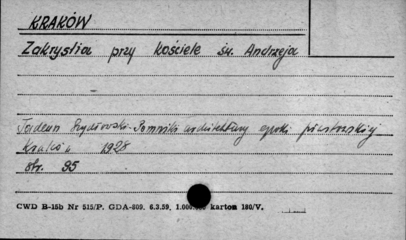 KRAKÓW
Zakrystia przy kościele św. Andrzeja
Tadeusz Szydłowski - Pomniki architektury epoki piastowskiej
Kraków 1928
str. 95
CWD B-15b Nr 515/P. GDA-809. 6.3.59. karton 180/V.